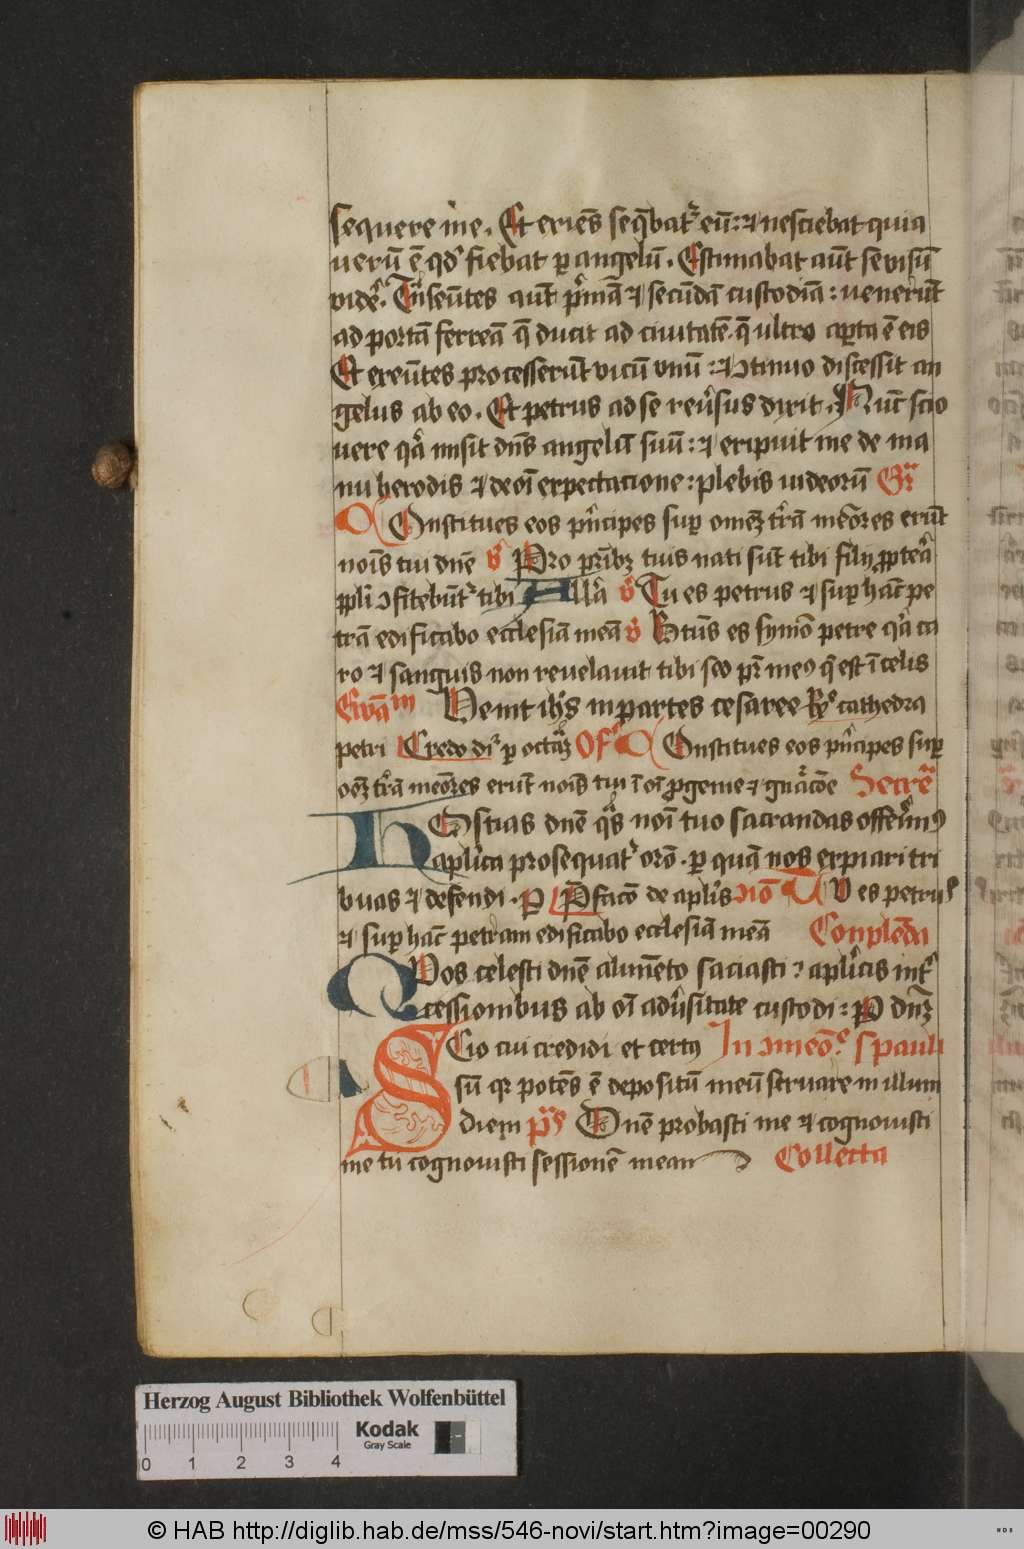 sequere me. Et exiēs seq̄bat᷑ eū: ⁊ nesciebat quia
uerū ē qd̓ fiebat ꝑ angelū. Estimabat aūt se visū
vidē᷑. Tn̄seūtes aūt p̄mā ⁊ secūdā custodiā: venerūt
ad portā ferreā q̄ ducit ad ciuitatē. q̄ ultro aꝑta ē eis
Et exeūtes processerūt vicū vnū: ⁊ ↄtinuo discessit an
gelus ab eo. Et petrus ad se reūsus dixit. Nūc scio
vere qa̓ misit dn̄s angelū suū: ⁊ eripuit me de ma
nu herodis ⁊ de oī expectacione: plebis iudeorū Gr̄
Constitues eos p̓ncipes suꝑ omēꝫ tr̄ā mēōres erūt
nois̄ tui dn̄e v̓ Pro pr̄ibꝫ tuis nati sūt tibi filij ꝓpteā
ppl̓i ↄfitebūt᷑ tibi All̓a v̓ Tu es petrus ⁊ suꝑ hāc pe
trā edificabo ecclesiā meā v̓ Btūs es symō petre qa̓ ca
ro ⁊ sanguis non reuelauit tibi sed pr̄ meꝰ q̄ est ī celis
Ewāᵐ Venit ihs̄ in partes cesaree Rͤ cathedra
petri Credo dr̄ ꝑ octāꝫ Of̄ Constitues eos p̓ncipes suꝑ
oēꝫ tr̄ā meōres erūt nois̄ tui ī oī ꝓgenie ⁊ gnātōe Secre᷑
Hostias dn̄e qs̄ noī tuo sacrandas offerīmꝰ
aplica prosequat᷑ orō. ꝑ quā nos expiari tri
buas ⁊ defendi. P̱ P̄fatō de aplis̄ ↄiō Tv es petrus
⁊ suꝑ hāc petram edificabo ecclesiā meā Conplēda
Quos celesti dn̄e alimēto saciasti: apl̓icis int̓
cessionibus ab oī adūsitate custodi: P̱ dn̄ꝫ
Scio cui credidi et certꝰ In ↄmeōe̓ s pauli
sū qr̄ potēs ē depositū meū seruare in illum
diem p̄s Dn̄e probasti me ⁊ cognouisti
me tu cognouisti sessionē meam Collecta
Herzog August Bibliothek Wolfenbüttel
Kodak
Gray Scale
0 1 2 3 4
© HAB http://diglib.hab.de/mss/546-novi/start.htm?image=00290